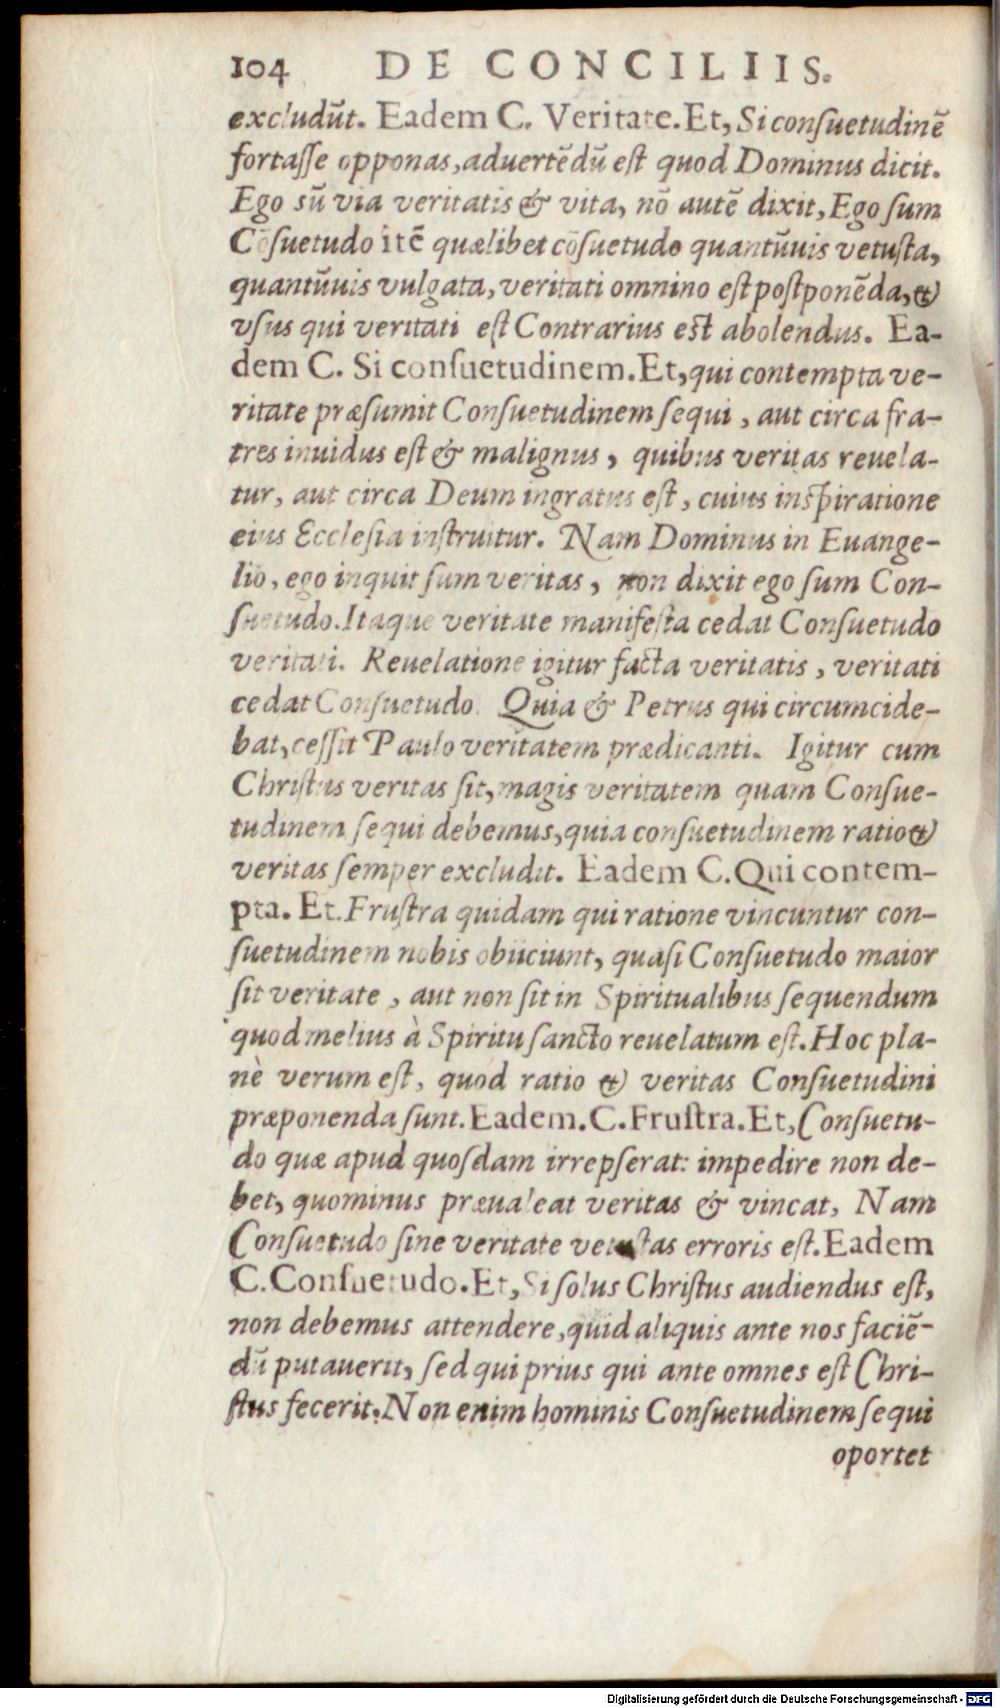 104 DE CONCILIIS.
excludūt. Eadem C. Veritate. Et, Si conſuetudinē
fortaſſe opponas, aduertēdū est quod Dominus dicit.
Ego sū via veritatis & vita, nō autē dixit, Ego ſum
Cōſuetudo itē quælibet cōſuetudo quantūuis vetuſta,
quantūuis vulgata, veritati omnino eſt poſtponēda, &
vſus qui veritati eſt Contrarius eſt abolendus. Ea-
dem C. Si conſuetudinem. Et, qui contempta ve-
ritate præſumit Conſuetudinem ſequi, aut circa fra-
tres inuidus eſt & malignus, quibus veritas reuela-
tur, aut circa Deum ingratus eſt, cuius inſpiratione
eius Eccleſia inſtruitur. Nam Dominus in Euange-
lio, ego inquit ſum veritas, non dixit ego ſum Con-
ſuetudo. Itaque veritate manifeſta cedat Conſuetudo
veritati. Reuelatione igitur facta veritatis, veritati
cedat Conſuetudo. Quia & Petrus qui circumcide-
bat, ceſſit Paulo veritatem prædicanti. Igitur cum
Chriſtus veritas ſit, magis veritatem quam Conſue-
tudinem ſequi debemus, quia conſuetudinem ratio &
veritas ſemper excludit. Eadem C. Qui contem-
pta. Et. Fruſtra quidam qui ratione vincuntur con-
ſuetudinem nobis obiiciunt, quaſi Conſuetudo maior
ſit veritate, aut non ſit in Spiritualibus ſequendum
quod melius à Spiritu ſancto reuelatum eſt. Hoc pla-
nè verum eſt, quod ratio & veritas Conſuetudini
præponenda ſunt. Eadem. C. Fruſtra. Et, Conſuetu-
do quæ apud quoſdam irrepſerat: impedire non de-
bet, quominus præualeat veritas & vincat, Nam
Conſuetudo ſine veritate vetuſtas erroris eſt. Eadem
C. Conſuetudo. Et, Si ſolus Chriſtus audiendus eſt,
non debemus attendere, quid aliquis ante nos faciē-
dū putauerit, ſed qui prius qui ante omnes eſt Chri-
ſtus fecerit. Non enim hominis Conſuetudinem ſequi
oportet
Digitalisierung gefördert durch die Deutsche Forschungsgemeinschaft - DFG